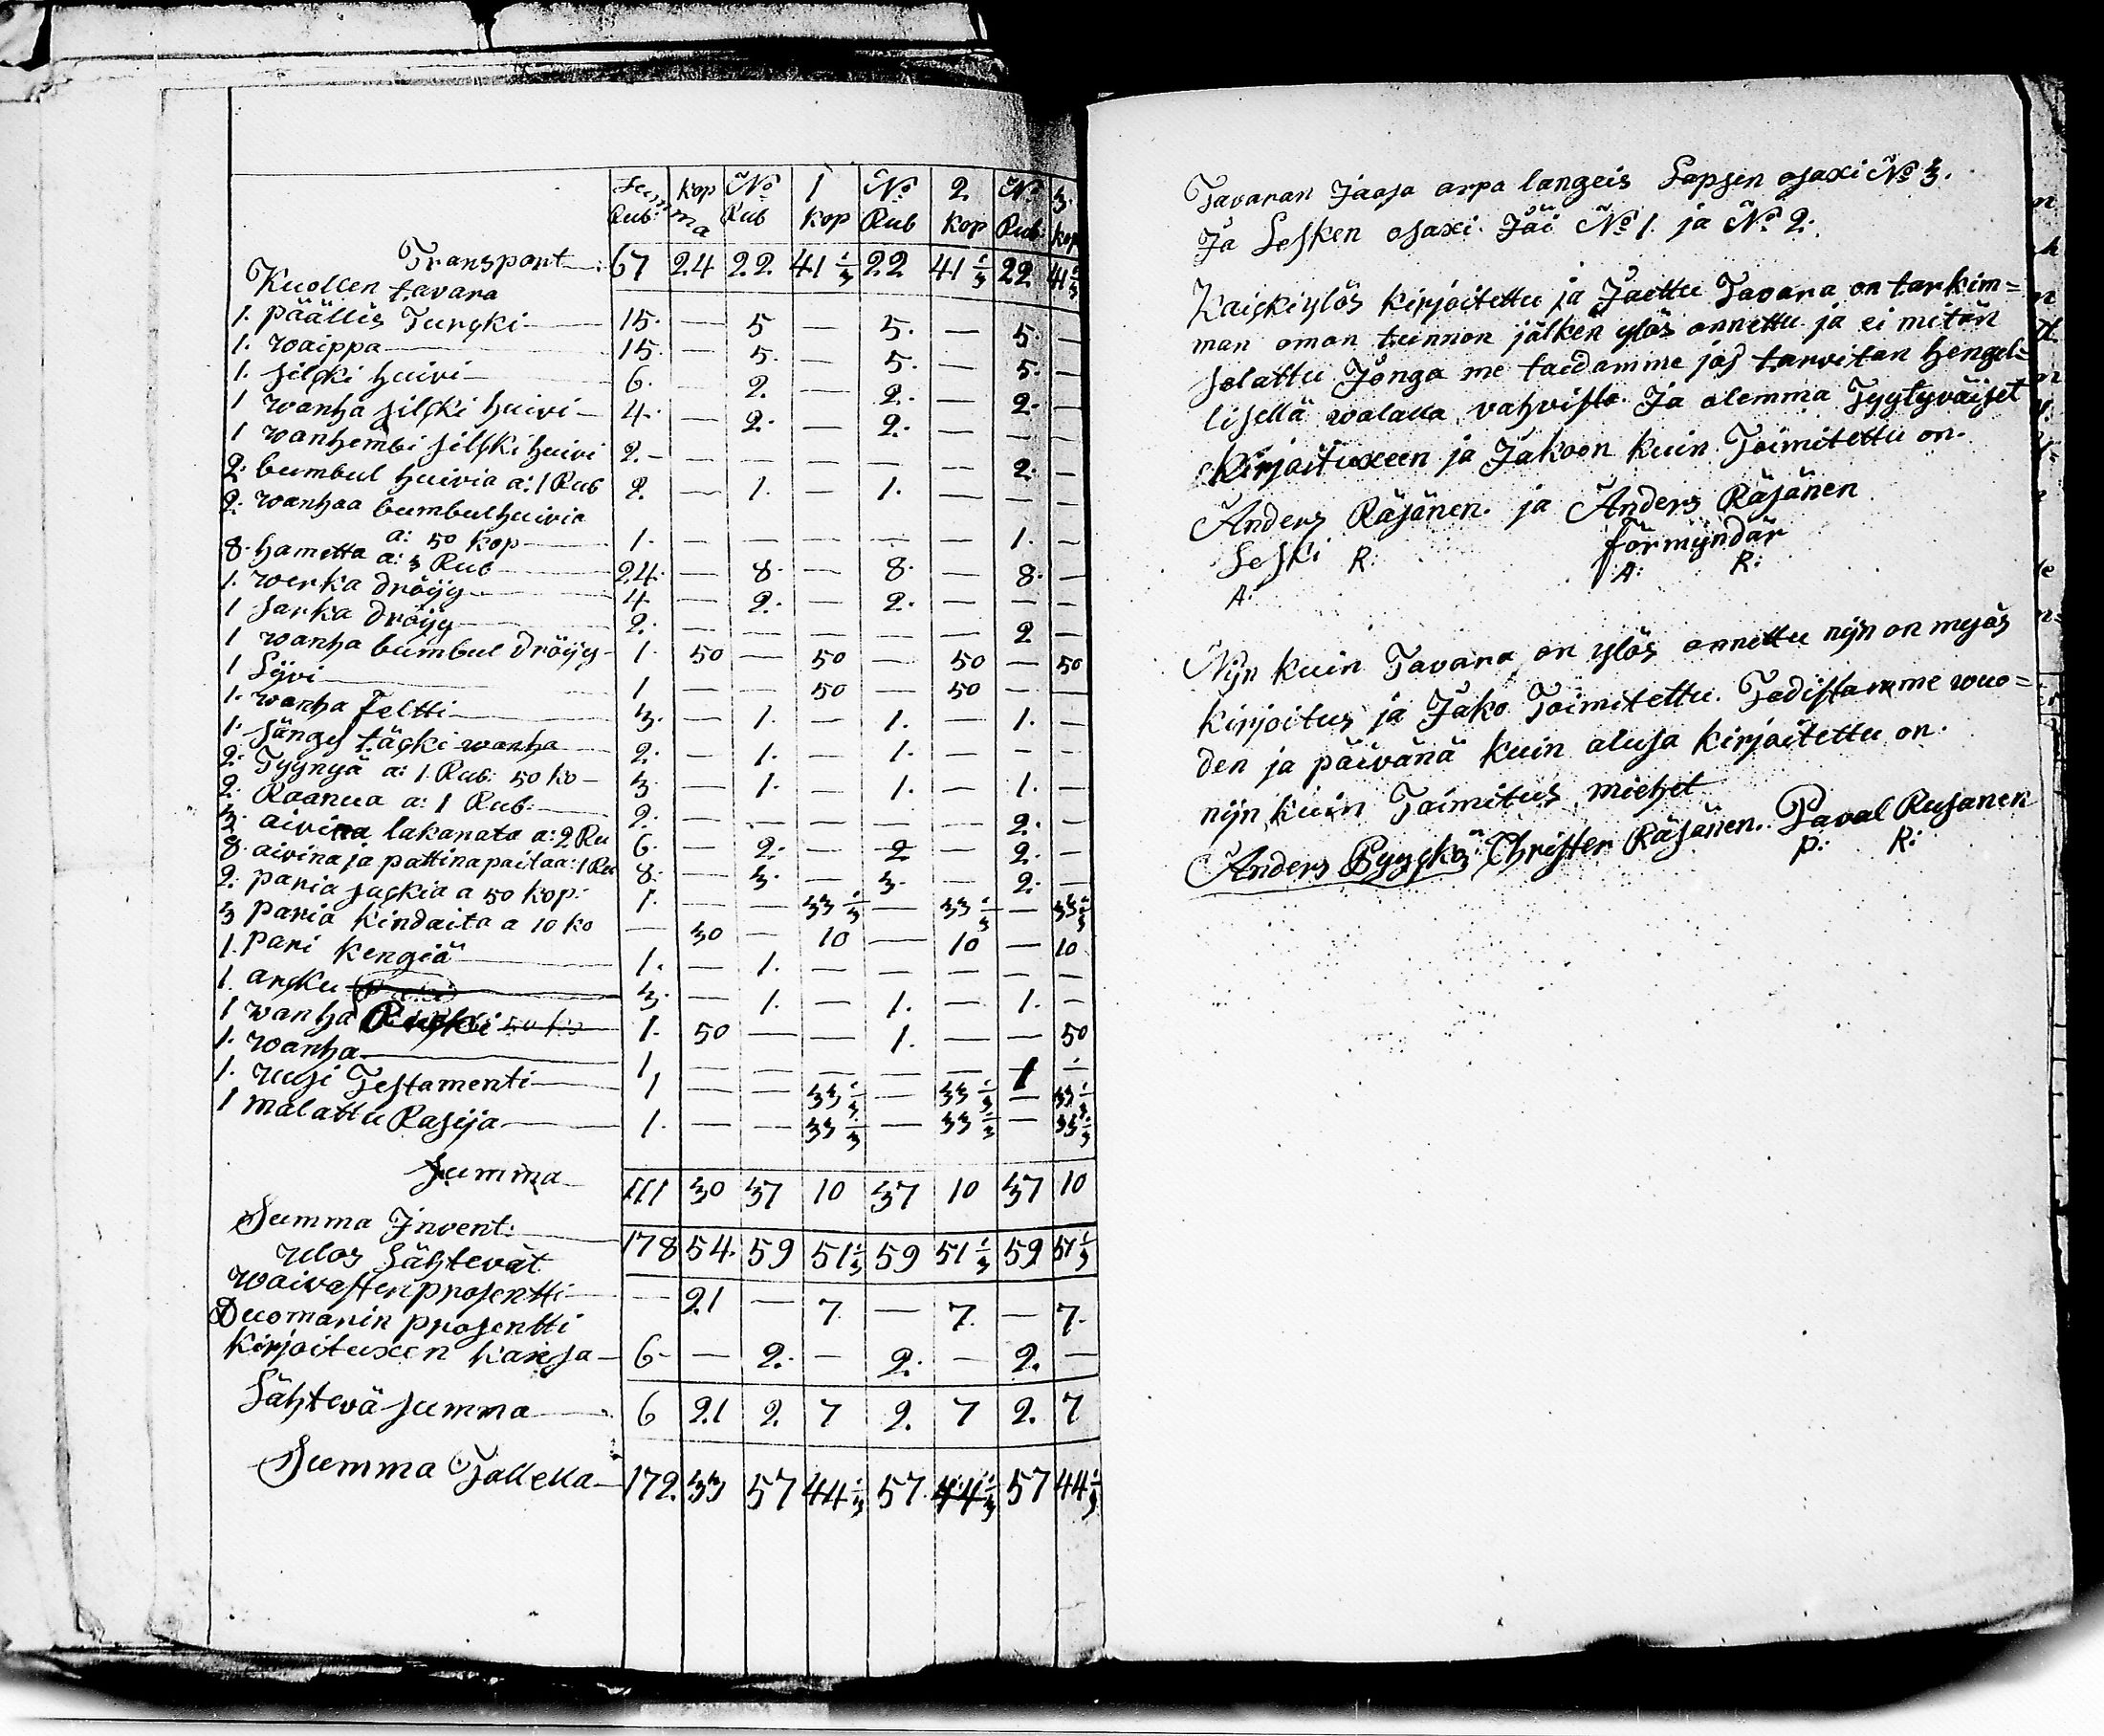 Summa kop № 1 № 2. № 3.
Rub: Rub kop Rub kop Rub: kop
Transport 67 24 22 41 1/3 22 41 1/3 22 41 1/3
Kuollen tavara
1. päällis Turcki 15. — 5 — 5. — 5. —
1. waippa 15. — 5. — 5. — 5. —
1. silcki huivi 6. — 2. — 2. — 2. —
1 wanha silcki huivi 4. — 2. — 2. — — —
1 wanhembi silcki huivi 2. — — — — — 2. —
2. bumbul huivia a: 1 Rub 2. — 1. — 1. — — —
2. wanhaa bumbulhuivia
a: 50 kop 1. — — — — — 1. —
8. hametta a: 3 Rub 24. — 8. — 8. — 8. —
1. werka dröijy 4. — 2. — 2. — — —
1 sarka dröijy 2. — — — — — 2 —
1 wanha bumbul dröijy 1. 50 — 50 — 50 — 50
1 Lijvi 1 — — 50 — 50 — —
1. wanha Feltti 3. — 1. — 1. — 1. —
1. sängy täcki wanha 2. — 1. — 1. — — —
2. Tyynyä a: 1. Rub: 50 ko 3. — 1. — 1. — 1. —
2. Raanua a: 1 Rub: 2. — — — — — 2. —
3. aivina lakanata a: 2 Ru 6. — 2. — 2 — 2. —
8. aivina ja pattina paitaa: 1 Ru 8. — 3. — 3. — 2. —
2. paria suckia a 50 kop: 1. — — 33 1/3 — 33 1/3 — 33 1/3
3 paria kindaita a 10 ko — 30 — 10 — 10 — 10
1. pari kengiä 1. — 1. — — — — —
1. arcku 3. — 1. — 1. — 1. —
1 wanha 50 ko 1. 50 — — 1. — — 50
1. wanha 1, — — — — — 1 —
1. uusi Testamenti 1 — — 33 1/3 — 33 1/3 — 33 1/3
1 malattu Rasija 1. — — 33 1/3 — 33 1/3 — 33 1/3
Summa 111 30 37 10 37 10 37 10
Summa Invent: 178 54. 59 51 1/3 59 51 1/3 59 51 1/3
ulos Lähtevät
waivasten prosentti — 21 — 7. — 7. — 7.
Duomarin prosentti
kirjoituxen kansa 6. — 2. — 2. — 2. —
Lähtevä summa 6 21 2. 7 2. 7 2. 7
Summa Jällellä 172. 33 57 44 1/3 57. 44 1/3 57 44 1/3
Tavaran Jaosa arpa langeis Lapsen osaxi № 3.
Ja Lesken osaxi Jäi № 1. ja № 2.
Kaicki ylös kirjoitettu ja Jaettu Tavara on tarkim=
man oman tunnon jälken ylös annettu ja ei mitän
salattu Jonga me taidamme jos tarvitan hengel=
lisellä walalla vahvista. Ja olemma Tyytyväiset
Kirjoituxeen ja Jakoon kuin Toimitettu on.
Anders Räsänen. ja Anders Räsänen
Leski R: förmyndär
A: A: R:
Nijn kuin Tavara on ylös annettu nijn on myös
kirjoitus ja Jako Toimitettu. Todistamme wuo=
den ja päivänä kuin alusa kirjoitettu on.
nijn kuin Toimitus miehet
Anders Pyyckö, Christer Räsänen. Paval Rusanen
P: R: